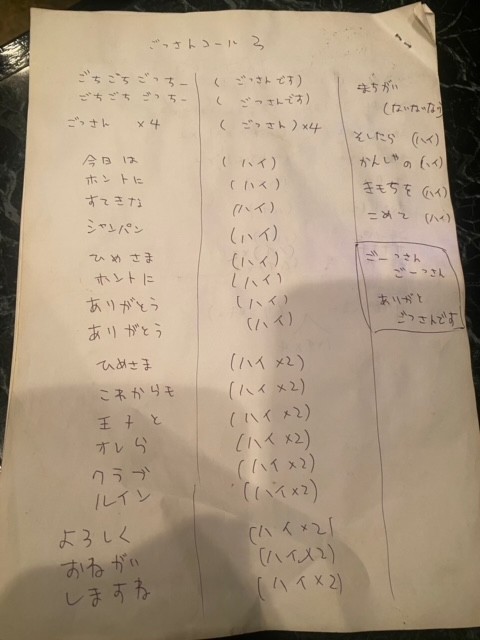 ごっさんコール 3
ごちごち ごっちー ( ごっさんです)
ごちごち ごっちー ( ごっさんです)
ごっさん ×4 ( ごっさん)×4
今日は (ハイ)
ホントに (ハイ)
すてきな (ハイ)
シャンパン (ハイ)
ひめさま (ハイ)
ホントに (ハイ)
ありがとう (ハイ)
ありがとう (ハイ)
ひめさま (ハイ×2)
これからも (ハイ×2)
王子と (ハイ×2)
オレら (ハイ×2)
クラブ (ハイ×2)
ルイン (ハイ×2)
よろしく (ハイ×2)
おねがい (ハイ×2)
しますね (ハイ×2)
まちがい
(ないないない)
そしたら (ハイ)
かんしゃの (ハイ)
きもちを (ハイ)
こめて (ハイ)
ごーっさん
ごーっさん
ありがと
ごっさんです